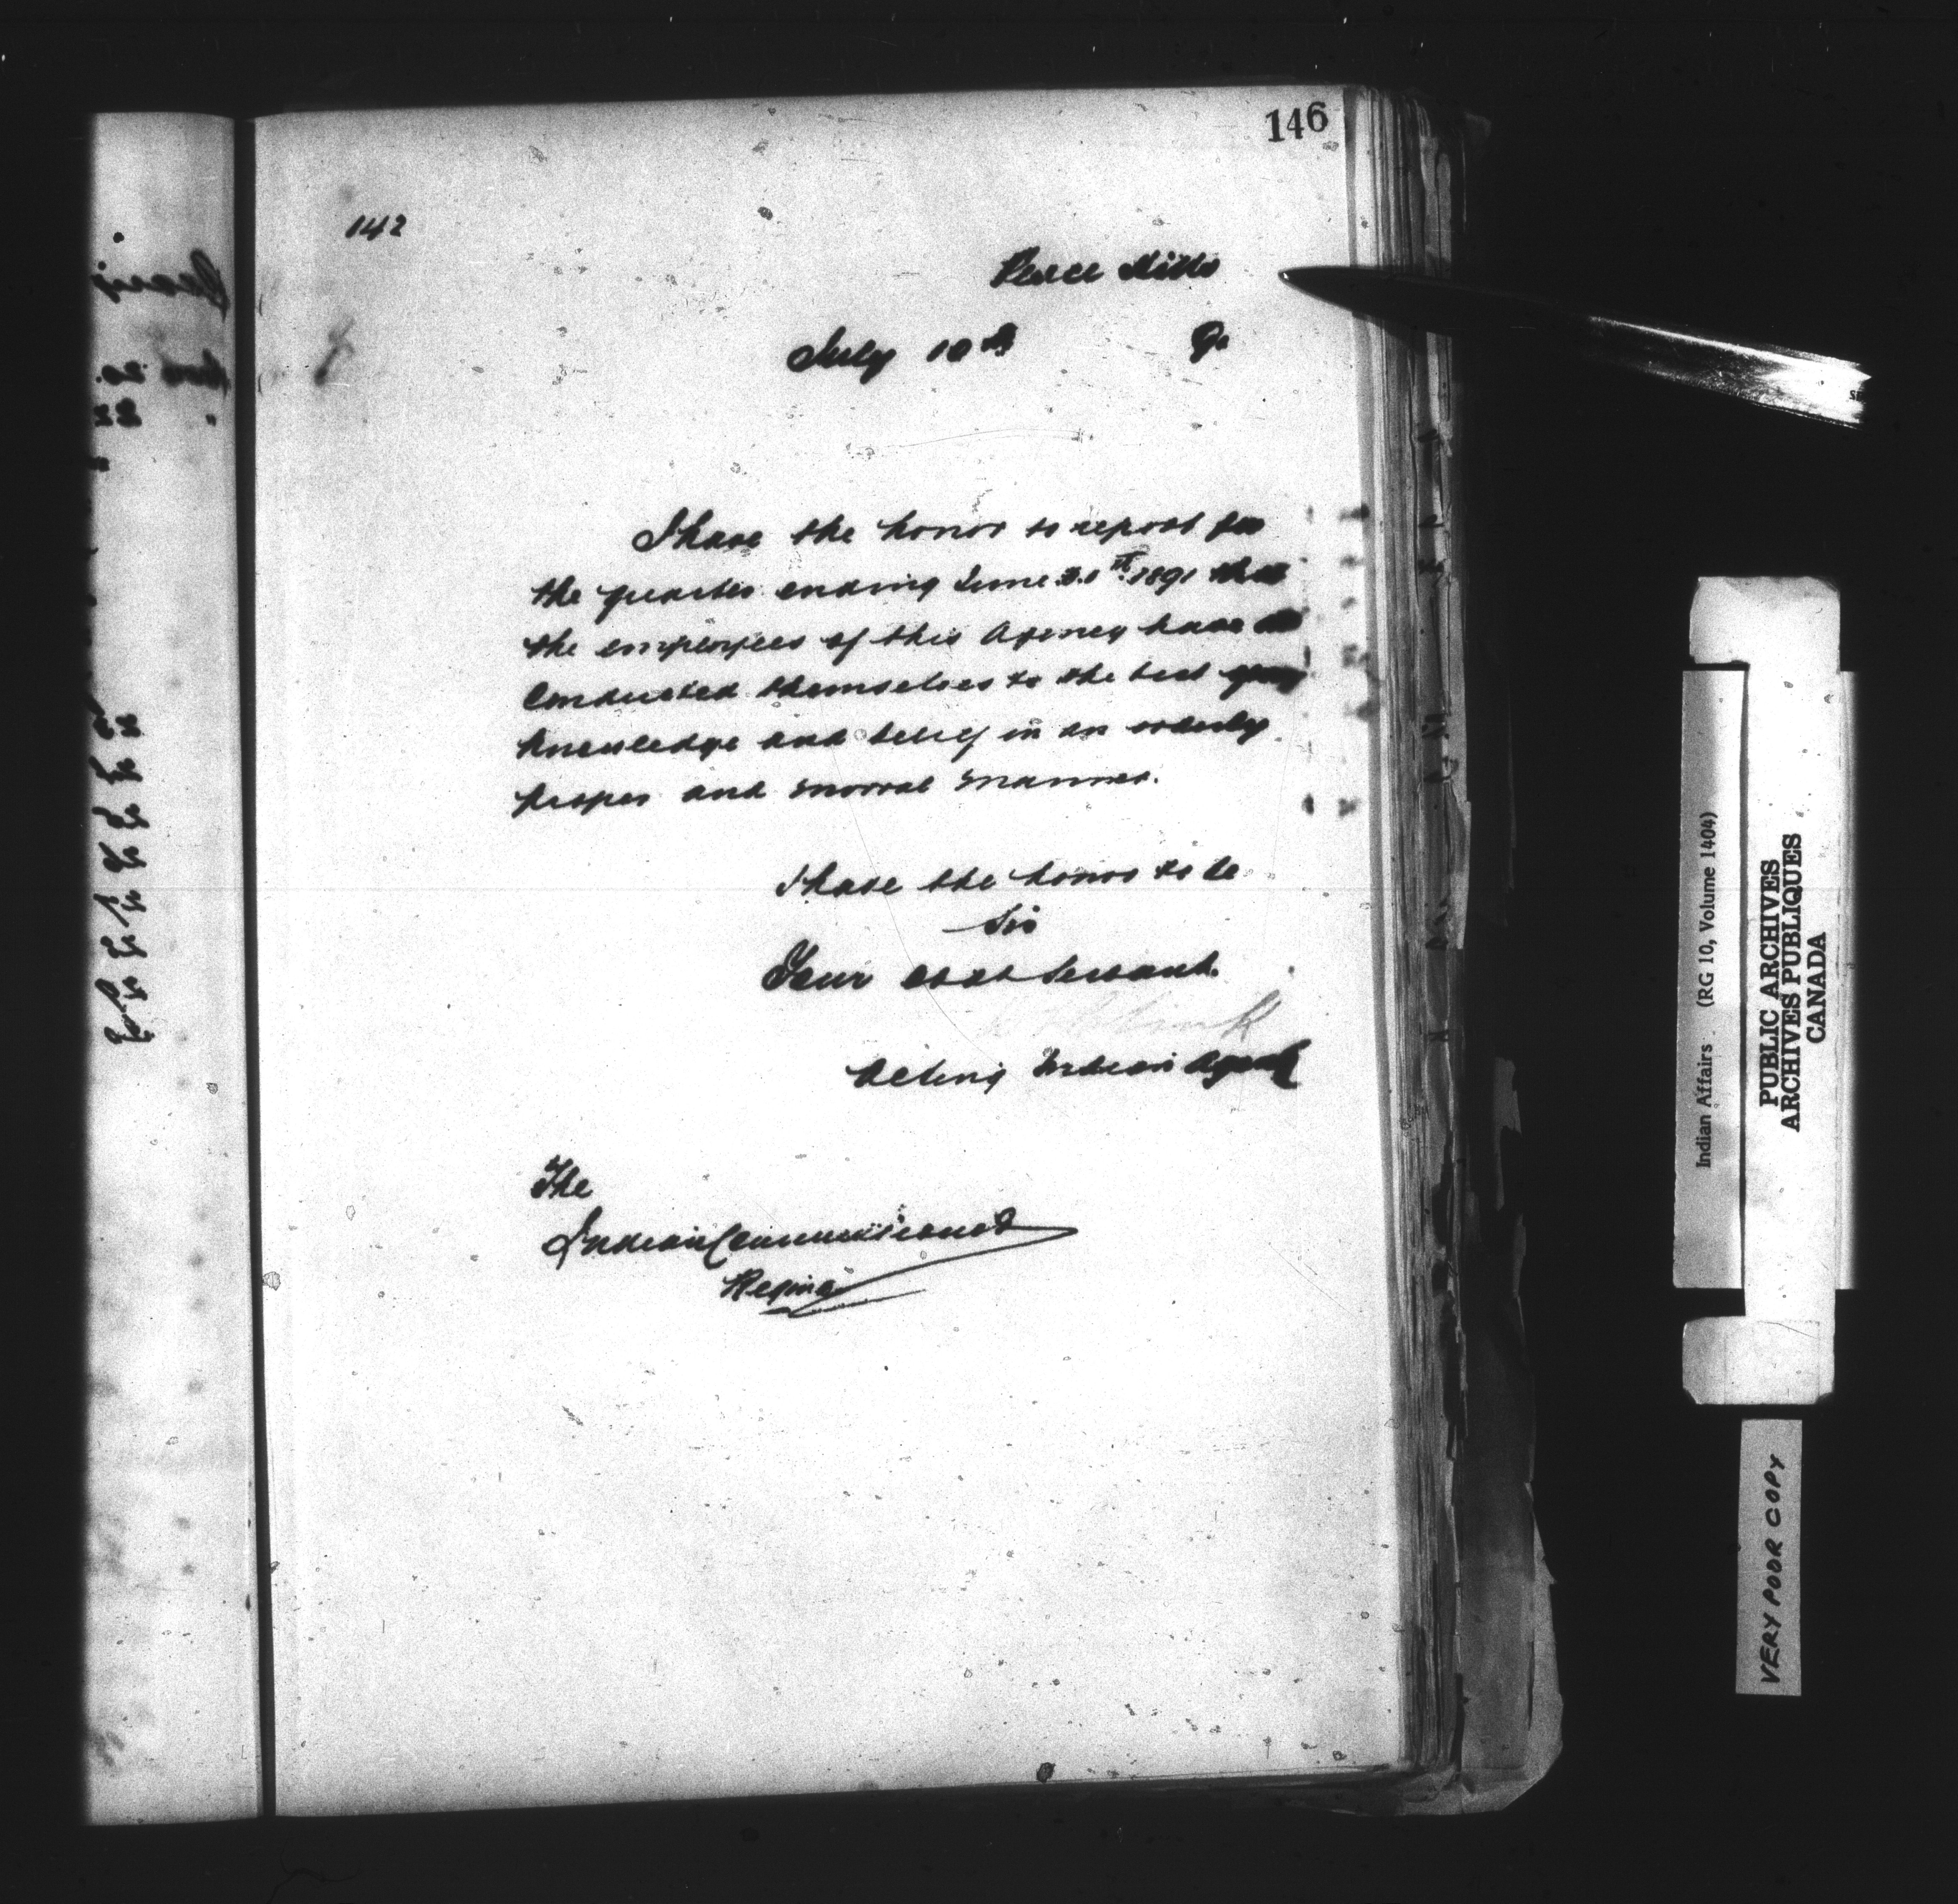 146
142
Peace Hills
July 10th 91
I have the honor to report for
the quarter ending June 30th 1891 that
the employees of this Agency have
Conducted themselves to the best
knowledge and belief in an orderly
proper and morral manner.
I have the honor to be
Sir
Your obdt Servant.
Acting Indian Agent
The
Indian Commissioner
Regina
Indian Affairs . (RG 10, Volume 1404)
PUBLIC ARCHIVES
ARCHIVES PUBLIQUES
CANADA
VERY POOR COPY